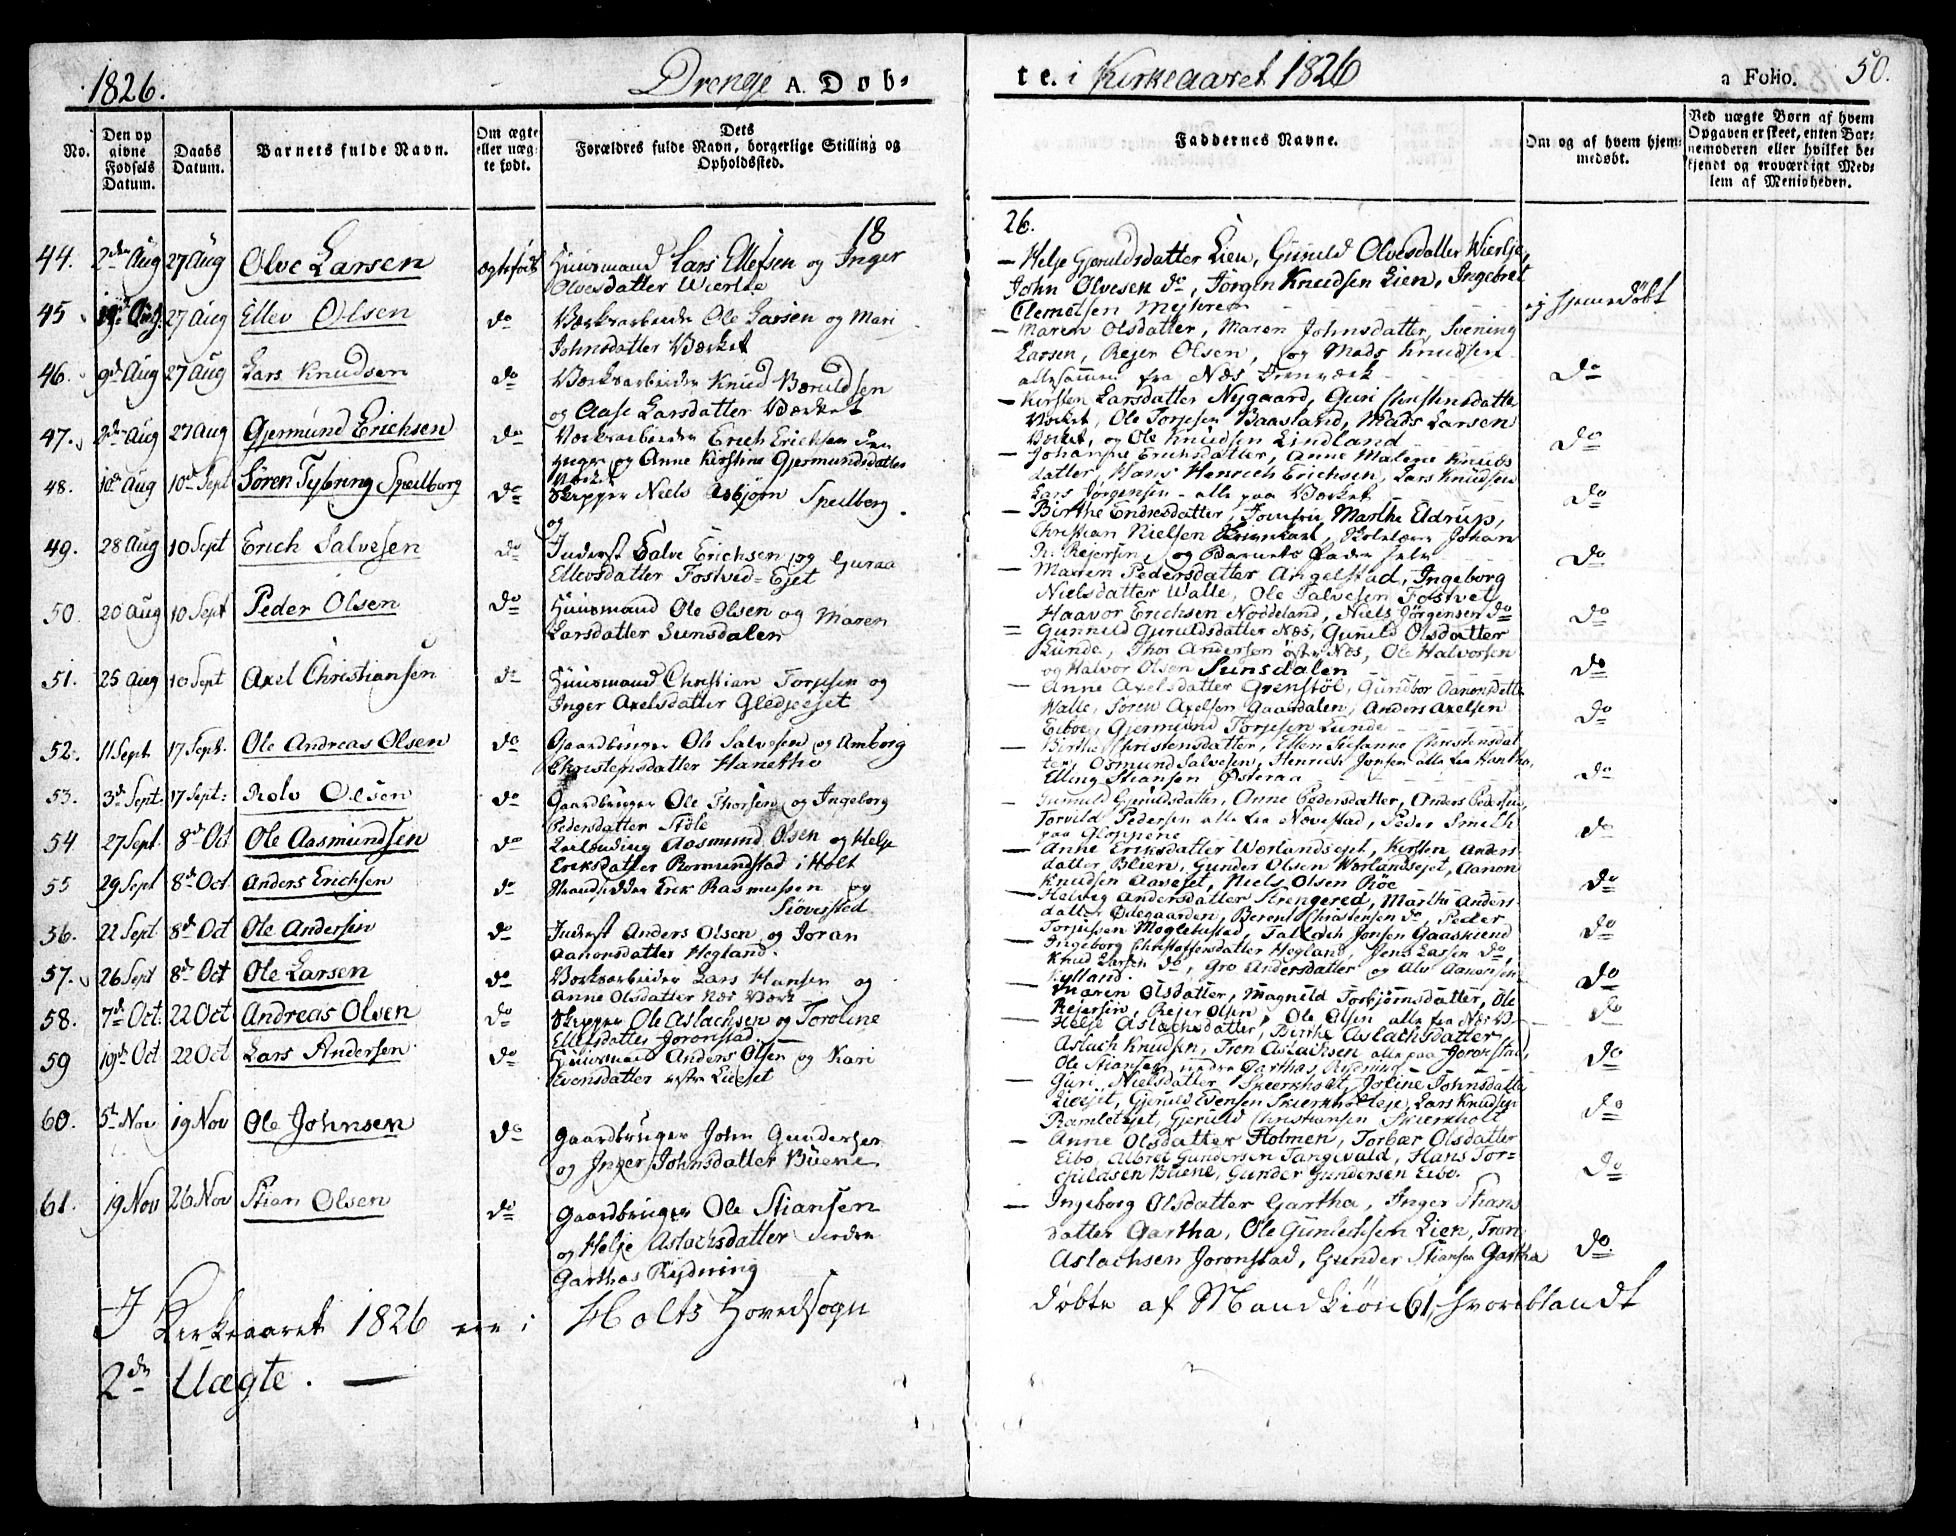 1826.
Drenge A. Døb-
No.
Den op
givne
Fødsels
Datum.
Daabs
Datum.
Barnets fulde Navn.
Om ægte
eller uæg-
te født.
Dets
Forældres fulde Navn, borgerlige Stilling og
Opholdssted.
18
44. 2den Aug 27 Aug Olve Larsen ægtefødt Huusmand Lars Ellefsen og Inger
Olvesdatter Wierlie
45 27 Aug Ellev Olsen do Værksarbeider Ole Larsen og Mari
Johnsdatter Værket
46. 9de Aug 27 Aug Lars Knudsen do Værksarbeider Knud Bæruldsen
og Aase Larsdatter Værket
47. 2den Aug 27 Aug Gjermund Erichsen do Værksarbeider Erich Erichsen
og Anne Kirstine Gjermundsdatter
48. 10de Aug 10de Sept Søren Tybring Speilborg do Skipper Niels Asbjørn Speilberg.
og
49. 28 Aug 10 Sept Erich Salvesen do Inderst Salve Erichsen og Guraa
Ellevsdatter Fostved-Ejet
50. 20 Aug 10 Sept Peder Olsen do Huusmand Ole Olsen og Maren
Larsdatter Sunsdalen
51. 25 Aug 10 Sept Axel Christiansen do Huusmand Christian Torjesen og
Inger Axelsdatter Gledjeejet
52. 11 Sept 17 Sept. Ole Andreas Olsen do Gaardbruger Ole Salvesen og Amborg
Christensdatter Hanetho
53. 3de Sept. 17 Sept: Rolv Olsen do Gaardbruger Ole Thorsen og Ingeborg
Pedersdatter Støle
54 27 Sept 8de Oct Ole Aasmundsen do Aasmund Olsen og Helje
Eriksdatter Romundstad i Holt
55 29 Sept 8de Oct. Anders Erichsen do Erik Rasmussen og
Siøversted
56. 22 Sept. 8de Oct Ole Andersen do Inderst Anders Olsen og Joran
Aanonsdatter Hegland.
57. 26 Sept 8de Oct Ole Larsen do Værksarbeider Lars Hansen og
Anne Olsdatter Næs Værk
58. 7de Oct. 22 Oct Andreas Olsen do Skipper Ole Aslachsen og Toroline
Ellefsdatter Joronstad.
59 19de Oct 22 Oct Lars Andersen do Huusmand Anders Olsen og Kari
Evensdatter Lieejet
60. 5te Nov 19 Nov Ole Johnsen do Gaardbruger John Gundersen
og Inger Johnsdatter Buene
61. 19 Nov 26 Nov Stian Olsen do Gaardbruger Ole Stiansen
og Helje Aslachsdatter nedre
Garthas Rydning
I Kirkeaaret 1826 ere i Holts Hovedsogn
2de Uægte.
te. i Kirkeaaret 1826
a Folio. 50.
Faddernes Navne.
Om og af hvem hjem-
medøbt.
Ved uægte Børn af hvem
Opgaven er skeet, enten Bar-
nemoderen eller hvilket be-
kjendt og troværdigt Med-
lem af Menigheden.
26.
Helje Gjeruldsdatter Lien, Gunild Olvesdatter Wierlie,
John Olvesen do, Jørgen Knudsen Lien, Ingebret
Clemetsen ej hjemedøbt
Maren Olsdatter, Maren Johnsdatter, Svening
Larsen, Rejer Olsen, og Mads Knudsen
allesammen fra Næs Jernværk do
Kirsten Larsdatter Nygaard, Guri Christensdatter
Værket, Ole Torjesen Baasland, Mads Larsen
Værket, og Ole Knudsen Lindland do
Johanne Erichsdatter, Anne Malene Knuds
datter, Hans Henrich Erichsen, Lars Knudsen
Lars Jørgensen - alle paa Værket do
Birthe Endresdatter, Jomfru Marthe Eldrup,
Christian Nielsen Johan
N. Rejersen, og Barnets Fader selv do
Maren Pedersdatter Angelstad, Ingeborg
Nielsdatter Walle, Ole Salvesen Fostvet
Haavor Erichsen Noddeland, Niels Jørgensen do do
Gunnild Gjeruldsdatter Næs, Gunild Olsdatter
Lunde, Thor Andersen østre Næs, Ole Halvorsen
og Halvor Olsen Sunsdalen do
Anne Axelsdatter Grenstøl, Gundbor Aanonsdatter
Walle, Søren Axelsen Gaasdalen, Anders Axelsen
Eiboe, Gjermund Torjesen Lunde do
Birthe Christensdatter, Ellen Susanne Christensdat
ter, Osmund Salvesen, Henrich Jonsen alle fra Hantho,
Elling Stiansen Østeraa do
Gunuld Gjeruldsdatter, Anne Pedersdatter, Anders Pedersen,
Torvild Pedersen alle fra Nævestad, Peder Smith
paa Gloppene do
Anne Eriksdatter Worlandsejet, Kirsten Anders-
datter Blien, Gunder Olsen Worlandsejet, Aanon
Knudsen Aaveset, Niels Olsen Röe do
Helvig Andersdatter Strengered, Marthe Anders-
datter Ødegaarden, Berent Christensen do, Peder
Torjussen Moglehustad, Tallach Jonsen Gaaslund do
Ingeborg Christophersdatter Hegland, Jens Larsen do,
Knud Larsen do, Gro Andersdatter og Alv Aanonsen
Hylland. do
Maren Olsdatter, Magnild Torbjørnsdatter, Ole
Rejersen, Rejer Olsen, Ole Olsen alle fra Næs V. do
Helje Aslachsdatter, Birthe Aslachsdatter,
Aslach Knudsen, Tron Aslachsen alle paa Joronstad,
Ole Stiansen nedre Garthas Rydning do
Guri Nielsdatter Skierkholt, Joline Johnsdatter
Lieejet, Gjeruld Evensen Skierkholteje, Lars Knudsen
Ramletejet, Gjeruld Christiansen Skierkholt do
Anne Olsdatter Holmen, Torbær Olsdatter
Eibo, Albret Gundersen Tangevald, Hans Tor-
gildsen Buene, Gunder Gundersen Eibo. do
Ingeborg Olsdatter Gartha, Inger Stians
datter Gartha, Ole Gunlechsen Lien, Tron
Aslachsen Joronstad, Gunder Stiansen Gartha do.
døbte af Mandkiøn 61, hvoriblandt